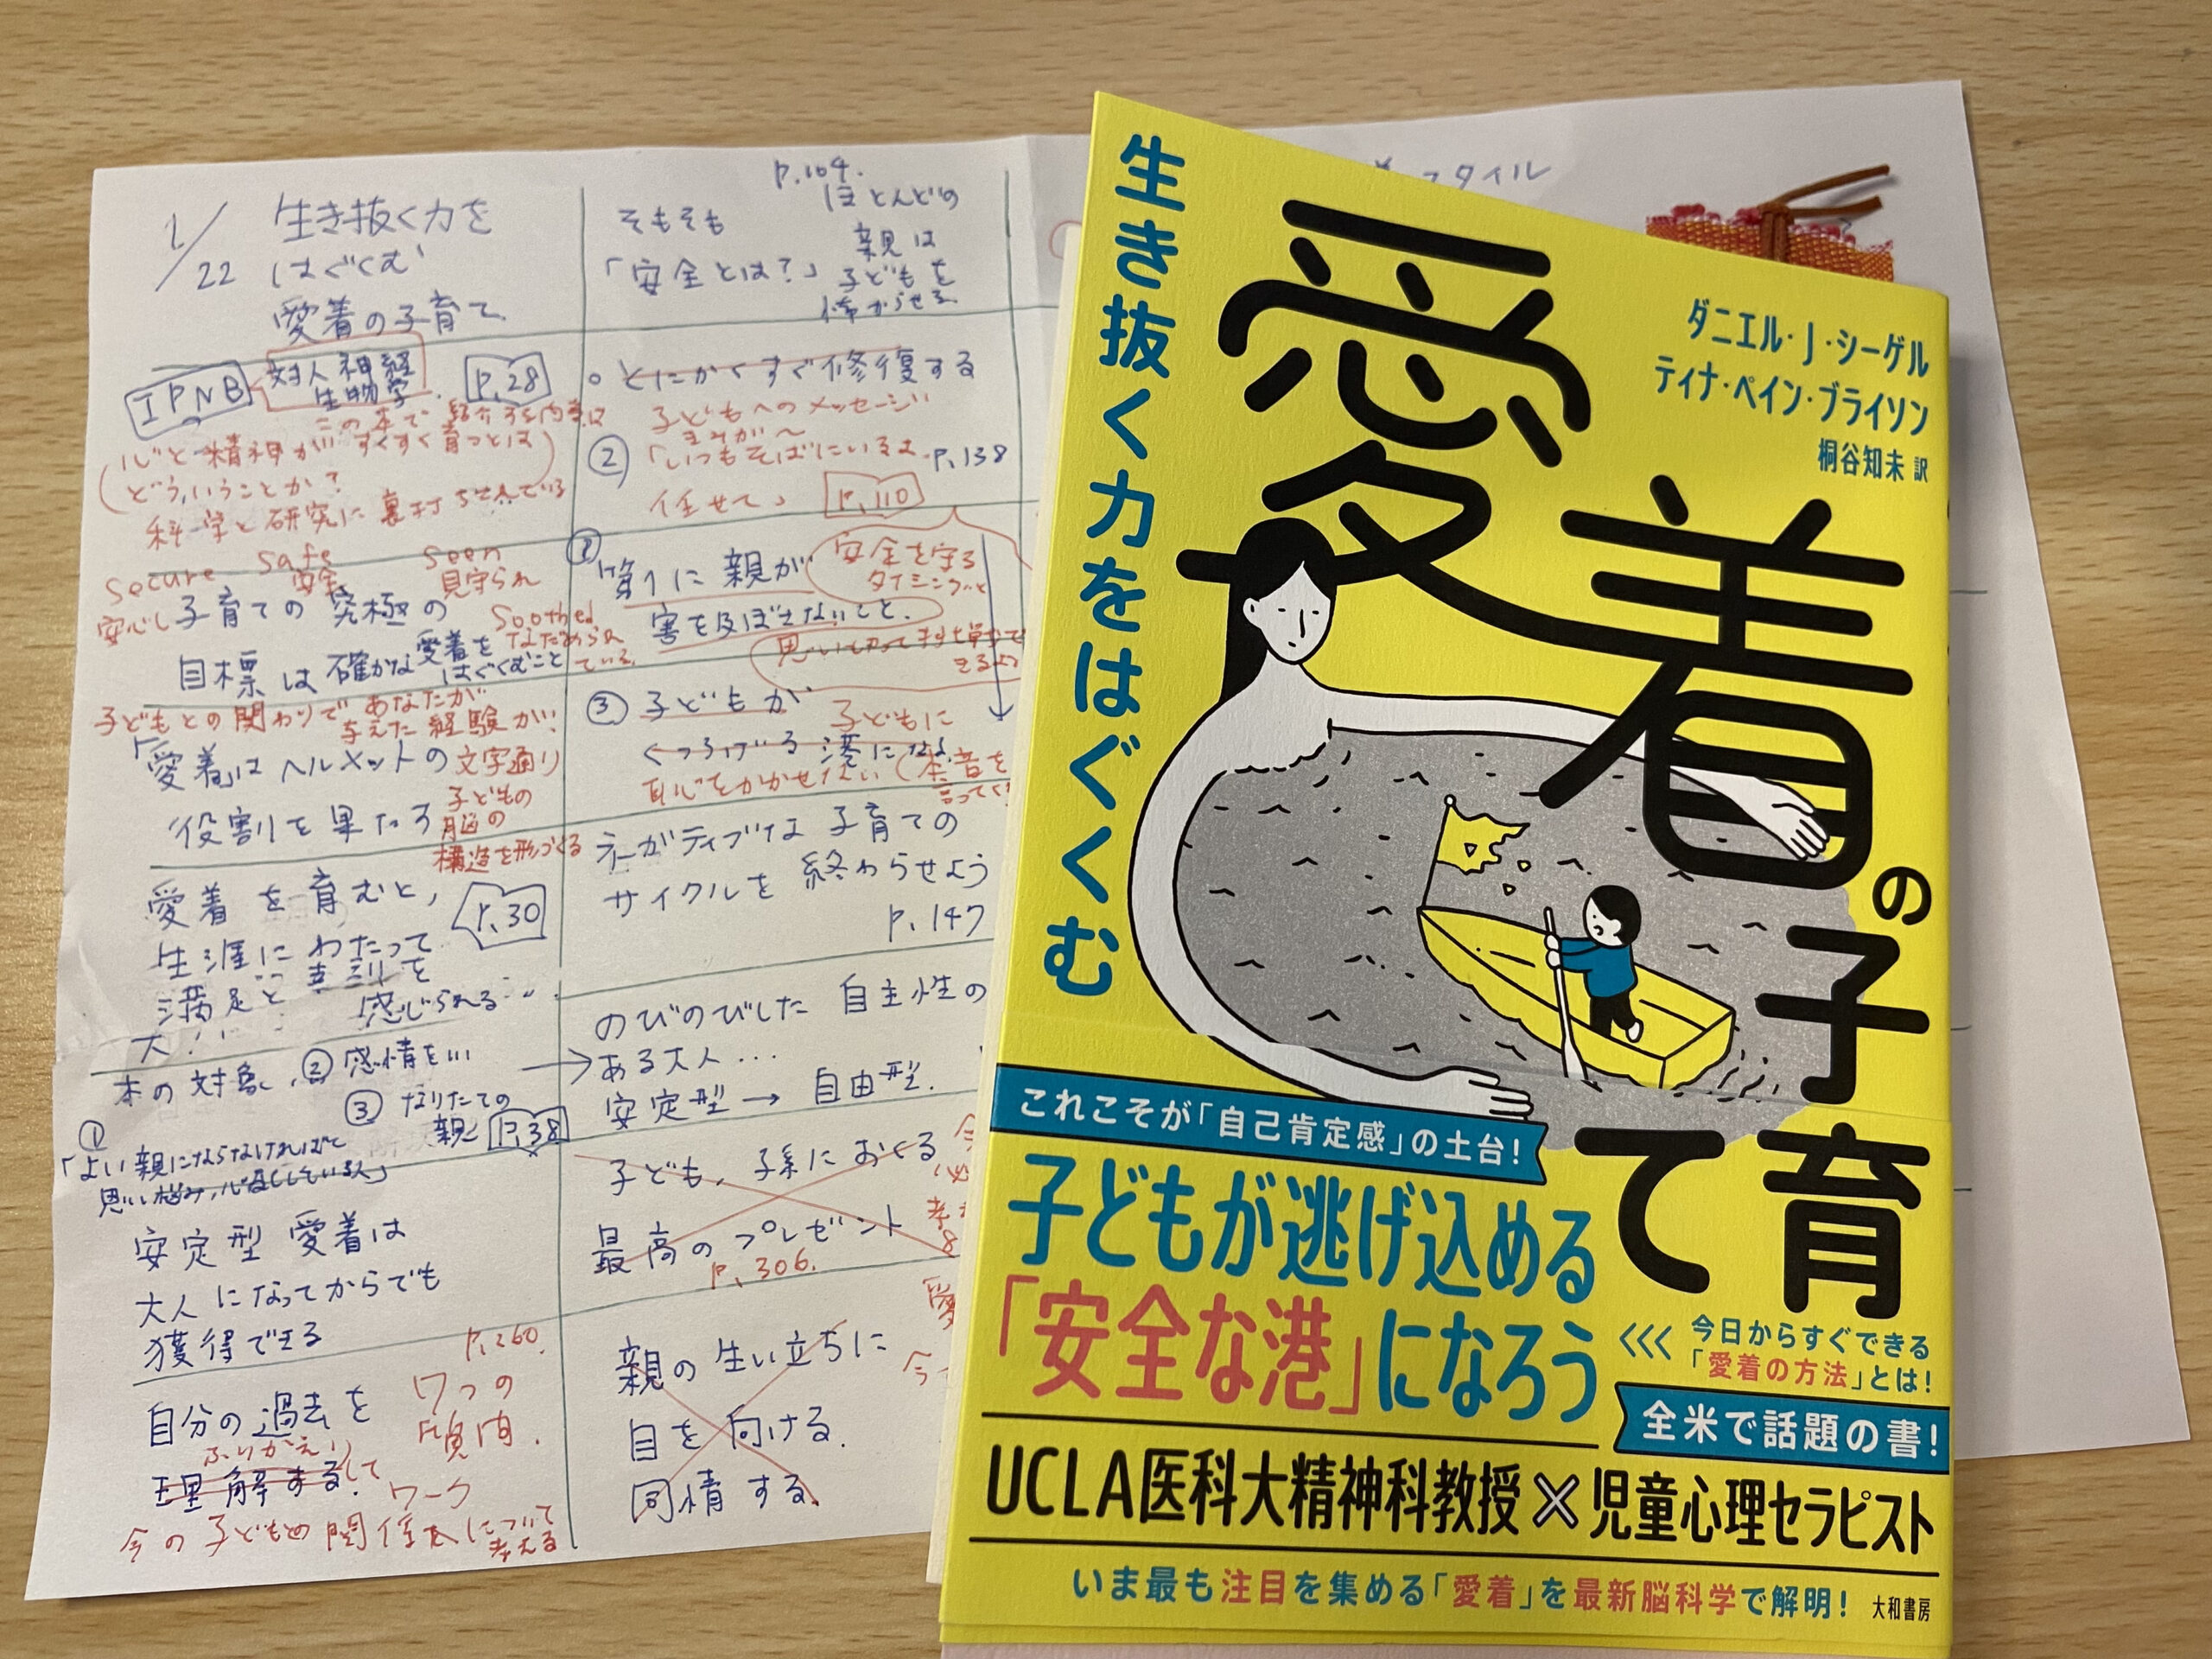 1/22
生き抜く力を
はぐくむ
愛着の子育て
IPNB
対人神経
生物学
P.28
この本で紹介する内容は
心と精神がすくすく育つとは
どういうことか?
科学と研究に裏付ちされている
secure safe seen
安心し 安全 見守られ
子育ての究極の
soothed
なだめられ
ている
目標は確かな愛着を
はぐくむこと
子どもとの関わりであなたが
与えた経験が
「愛着」はヘルメットの
文字通り
役割を果たす
子どもの
脳の
構造を形づくる
愛着を育むと,
P.30
生涯にわたって
満足と
感じられる…
本の対象
②感情をい
③なりたての
親
P.38
①
「よい親にならなければと
思い悩み,心配している人」
安定型愛着は
大人になってからでも
獲得できる
自分の過去を
ふりかえり
理解する.して
P.260.
7つの
質問.
ワーク
今の子どもの関係について
考える
P.104.
そもそも
「安全とは?」
ほとんどの
親は
子どもを
怖がらせる
。とにかくすぐ修復する
子どもへのメッセージ
②「いつもそばにいるよ
P.138
任せて」
P.110
①「第1に親が
害を及ぼさないこと.
安全を守る
タイミングと
思い切って
③子どもが
くつろげる港になる
子どもに
恥をかかせない(本音を
ネガティブな子育ての
サイクルを終わらせよう
P.147
のびのびした自主性の
ある大人…
安定型→自由型.
子ども,子孫におくる
最高のプレゼント
P.306.
親の生い立ちに
目を向ける.
同情する.
スタイル
生き抜く力をはぐくむ
愛着の子育て
ダニエル・J・シーゲル
ティナ・ペイン・ブライソン
桐谷知未 訳
これこそが「自己肯定感」の土台!
子どもが逃げ込める
「安全な港」になろう
<<< 今日からすぐできる
「愛着の方法」とは!
全米で話題の書!
UCLA医科大精神科教授×児童心理セラピスト
いま最も注目を集める「愛着」を最新脳科学で解明!
大和書房